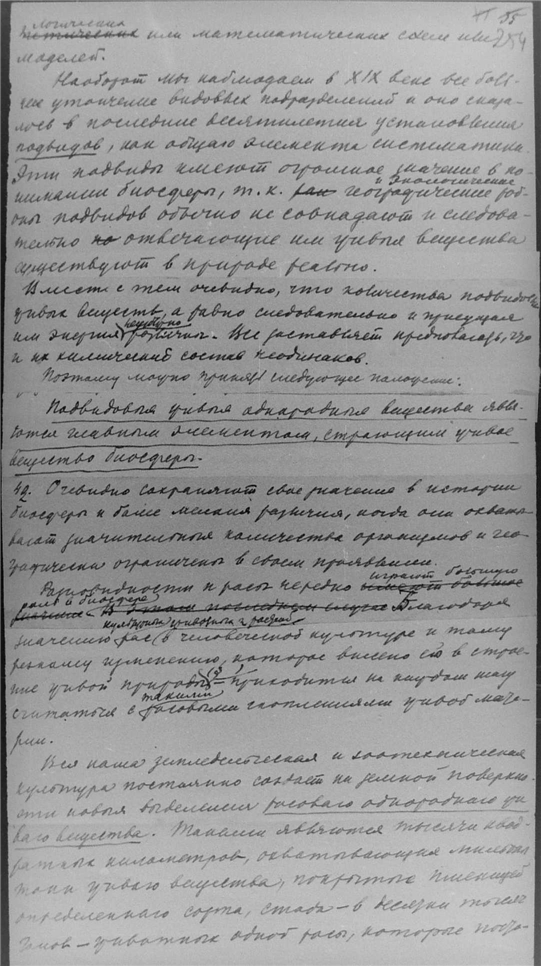 VI 55
логических
или математических схем или 254
моделей.
Наоборот мы наблюдаем в XIX веке все бол-
утончение видовых подразделений и оно сказа-
лось в последние десятилетия установления
подвидов, как общаго элемента систематики.
Эти подвиды имеют огромное значение в по-
и экологические
нимании биосферы, т. к. географические рай-
оны подвидов обычно не совпадают и следова-
тельно но отвечающие им живыя вещества
существуют в природе реально.
Вместе с тем очевидно, что количества подвидовых
живых веществ, а равно следовательно и присущая
им энергия различны. Все заставляет предполагать, что
и их химический состав неодинаков.
Поэтому можно принять следующее положение:
Подвидовыя живыя однородныя вещества явля-
ются главным элементом, строющим живое
вещество биосферы.
42. Очевидно сохраняют свое значение в истории
биосферы и более мелкия различия, когда они охваты-
вают значительныя количества организмов и гео-
графически ограничены в своем проявлении.
играют большую
Разновидности и расы нередко имеют большое
роль в биосфере
значение. Благодаря
культурных животных и растений
значению рас в человеческой культуре и тому
изменению, которое внесено ею в строе-
ние живой природы приходится на каждом шагу
такими
считаться с расовыми скоплениями живой мате-
рии.
Вся наша земледельческая и зоотехническая
культура постоянно создает на земной поверхно-
сти новыя выделения расоваго однороднаго жи-
ваго вещества. Такими являются тысячи квад-
ратных километров, охватывающия миллионы
тонн живаго вещества, покрытые пшеницей
определеннаго сорта, стада – в десятки тысяч
голов – животных одной расы, которые